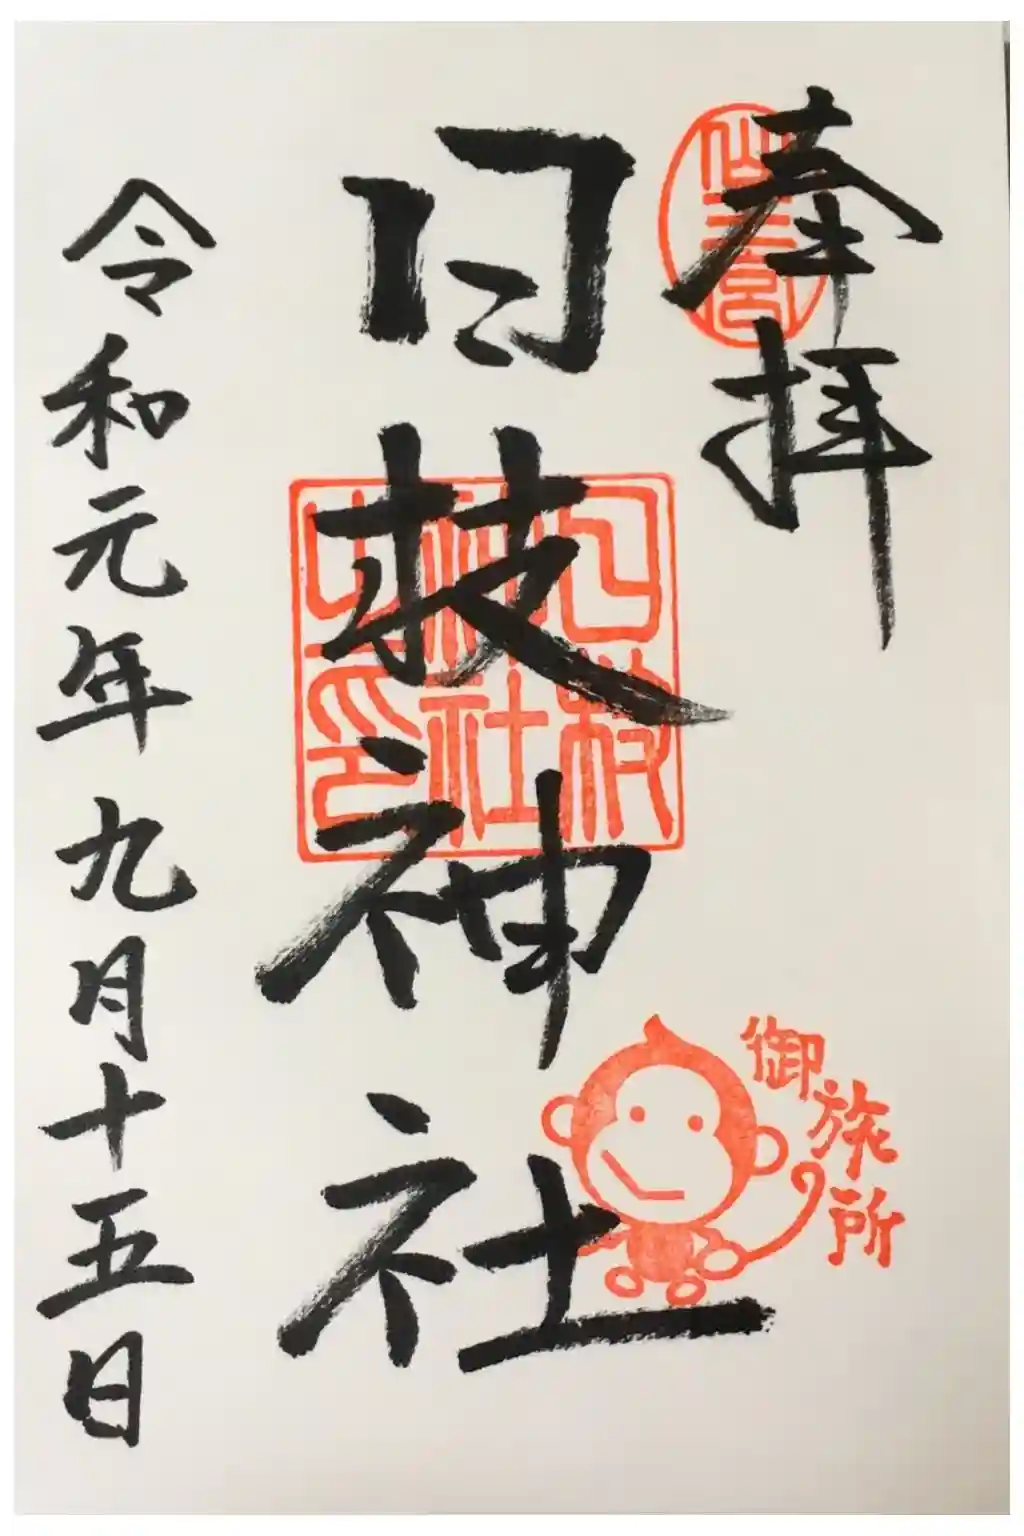 奉拝
日枝神社
令和元年九月十五日
日枝
神社
之印
御旅所